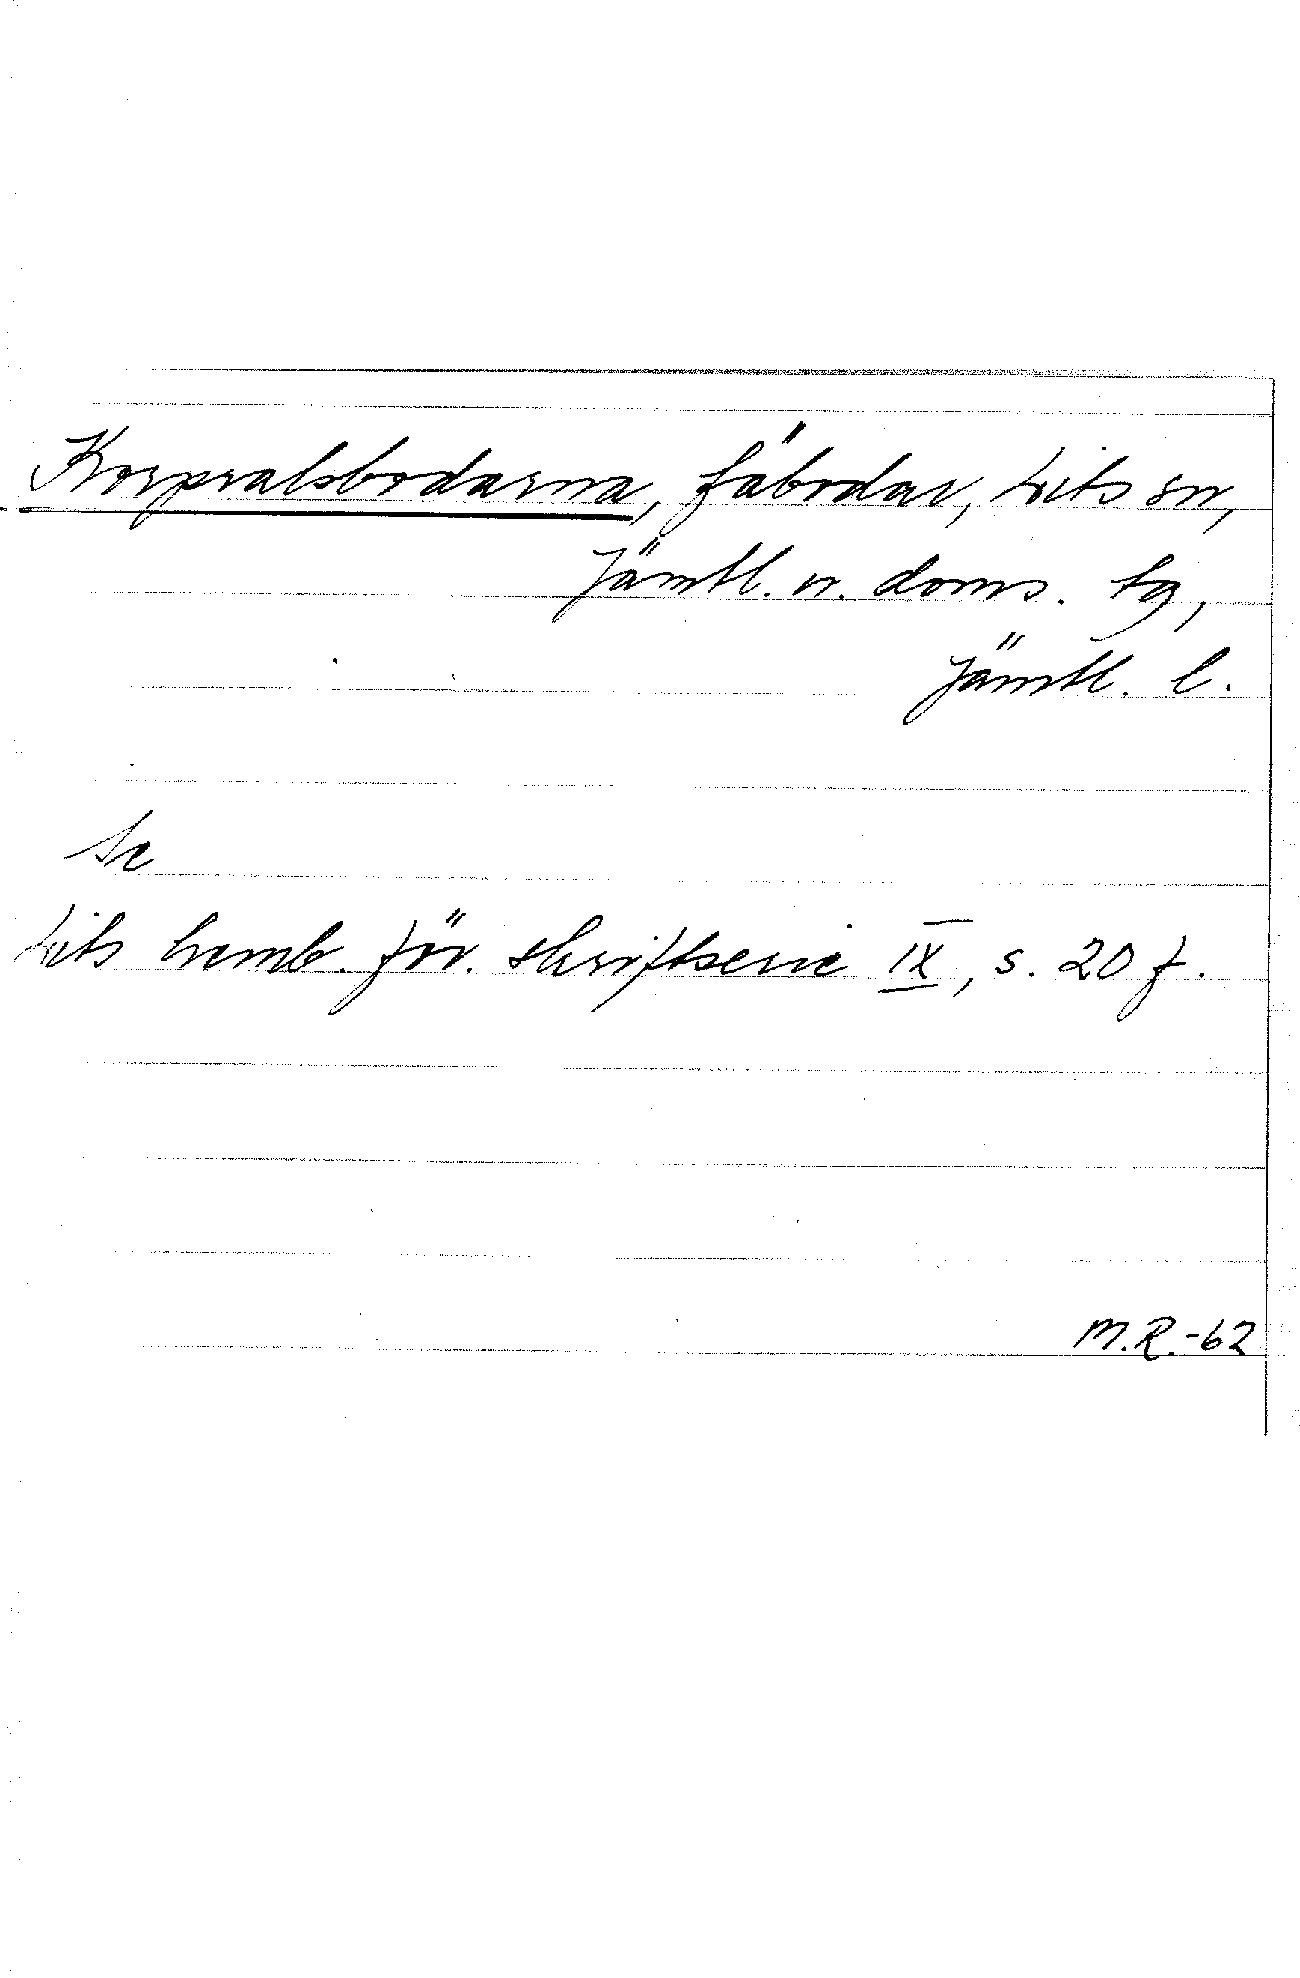 Korpralsbodarna, fäbodar, Lits sn,
Jämtl. n. doms. tg,
Jämtl. l.
Se
Lits hemb. för. skriftserie IX, s. 20 f.
M.R.-62